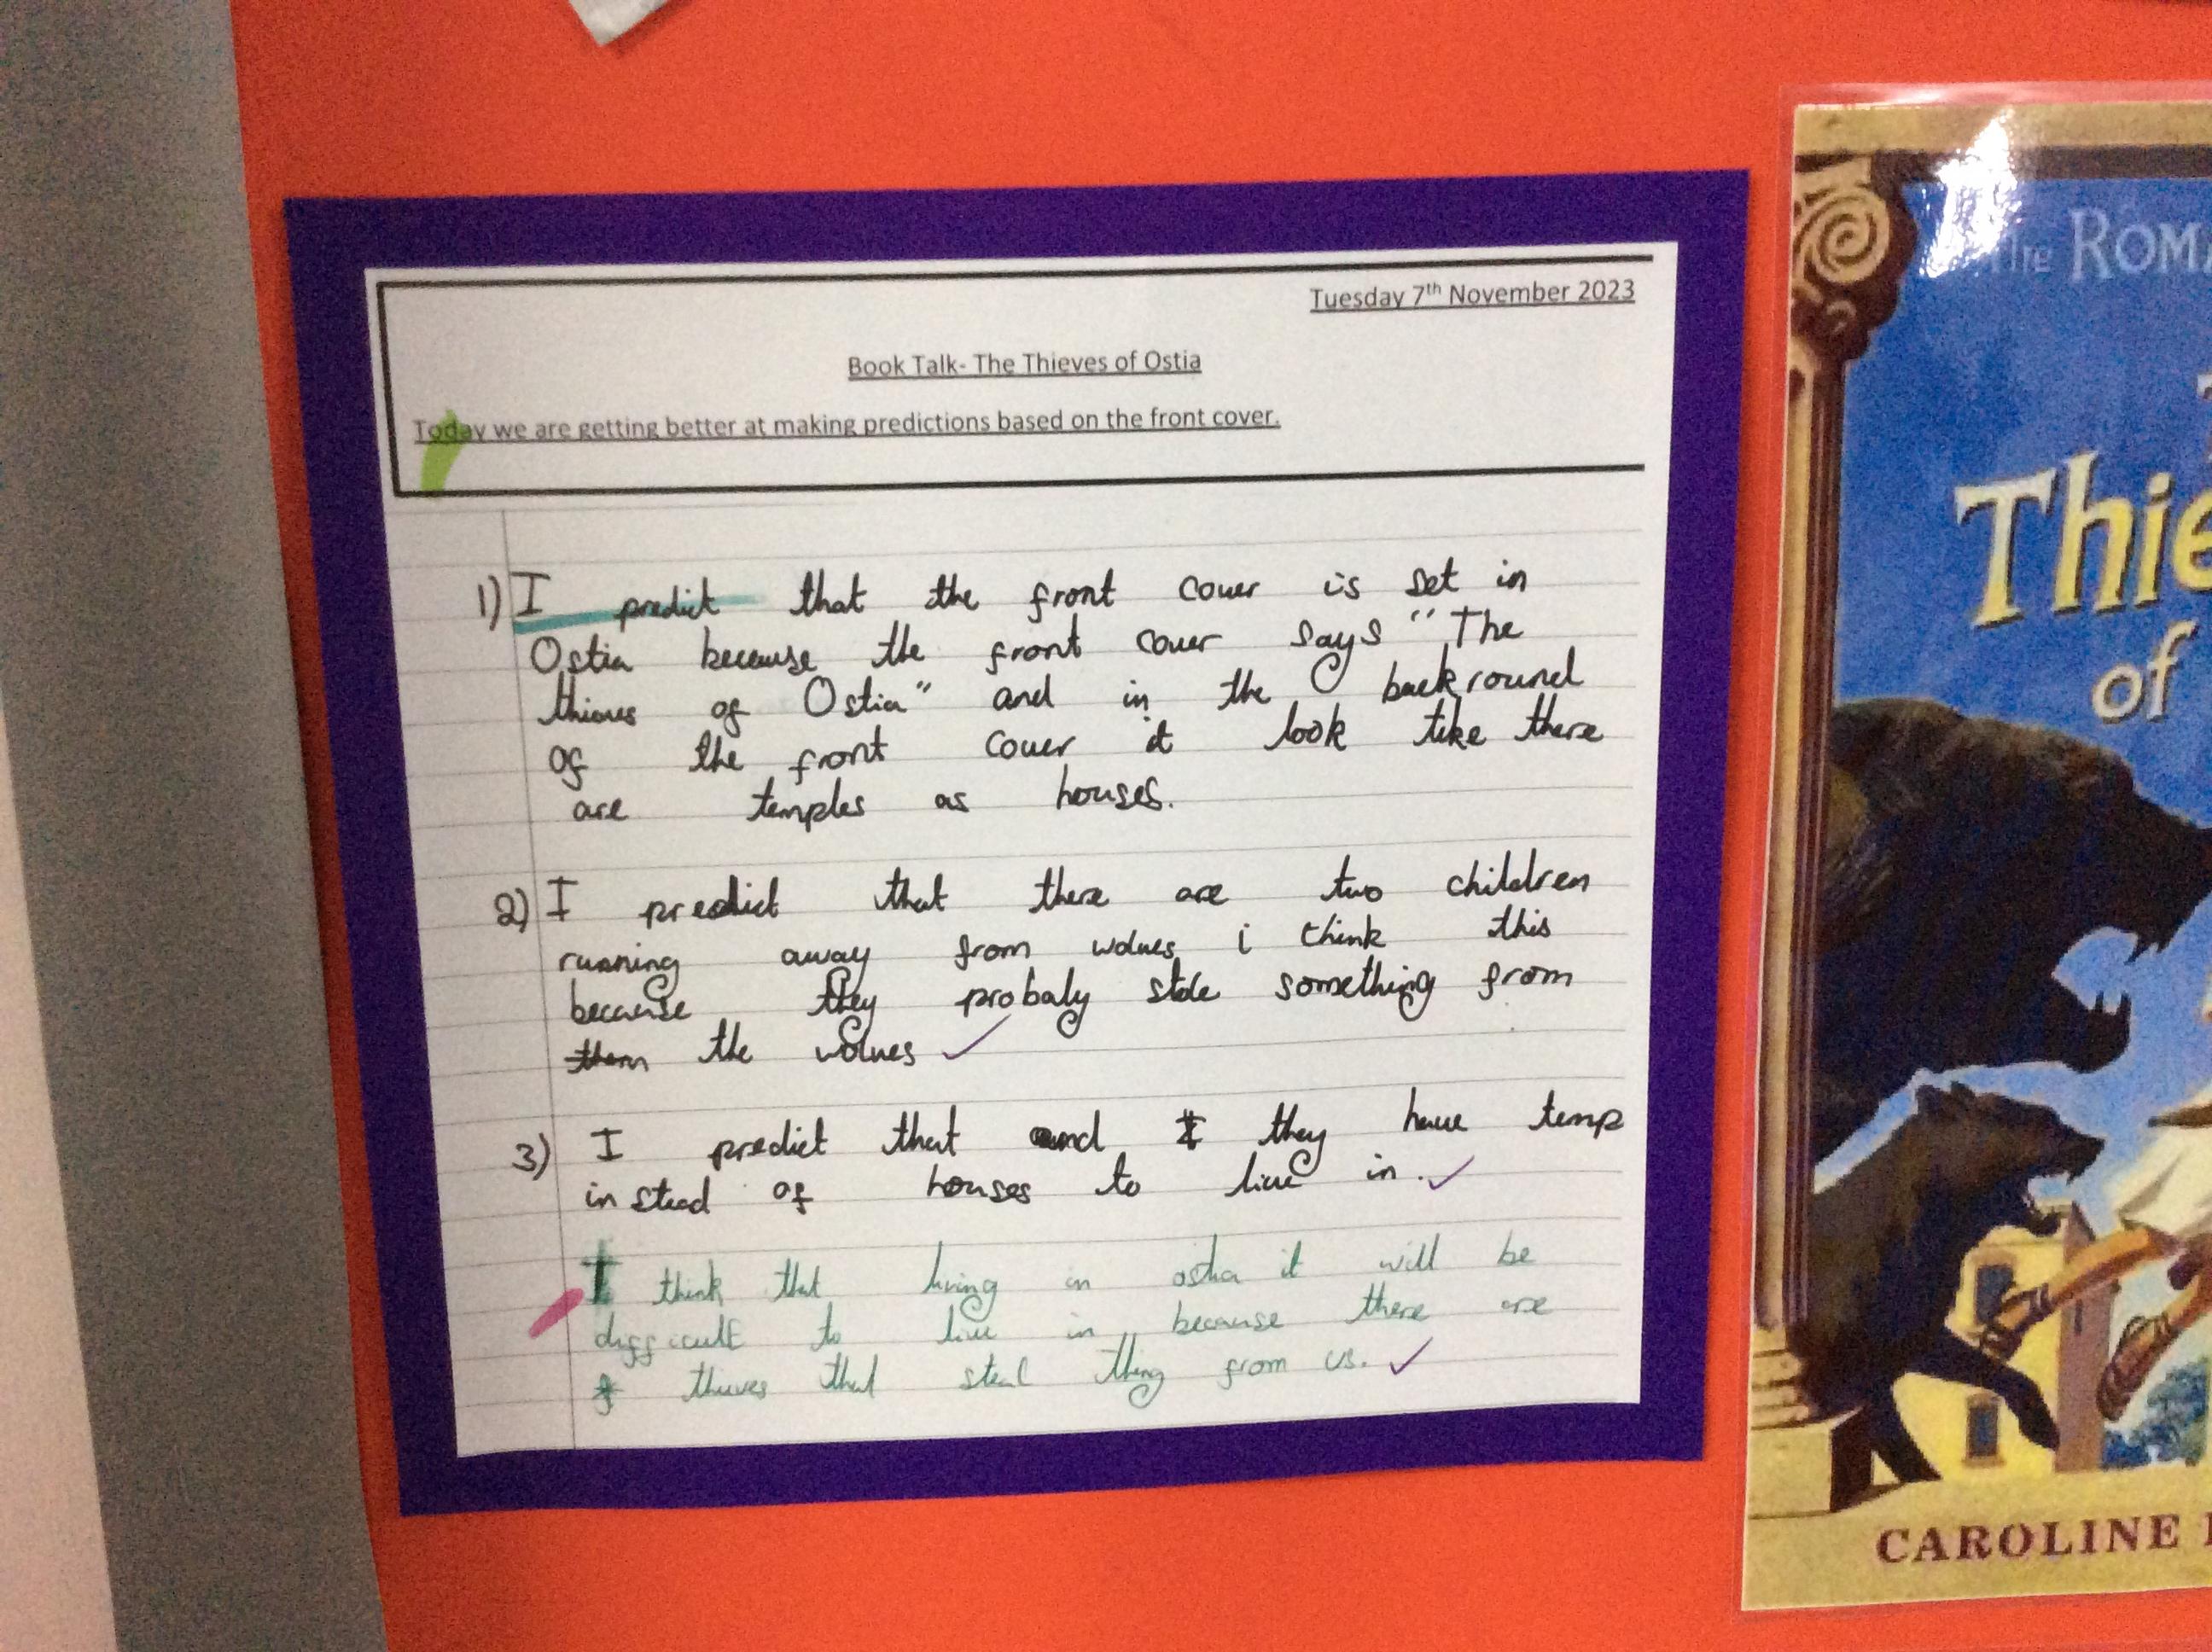 Tuesday 7th November 2023
Book Talk- The Thieves of Ostia
Today we are getting better at making predictions based on the front cover.
1) I predict that the front cover is set in
Ostia because the front cover says "The
thioves of Ostia" and in the backround
of the front cover it look like there
are temples as houses.
2) I predict that there are two children
running away from wolves i think this
because they probaly stole something from
them the wolves
3) I predict that and I they have temp
instead of houses to live in.
I think that living in ostia it will be
difficult to live in because there are
thieves that steal thing from us.
The ROMA
Thie
of
CAROLINE